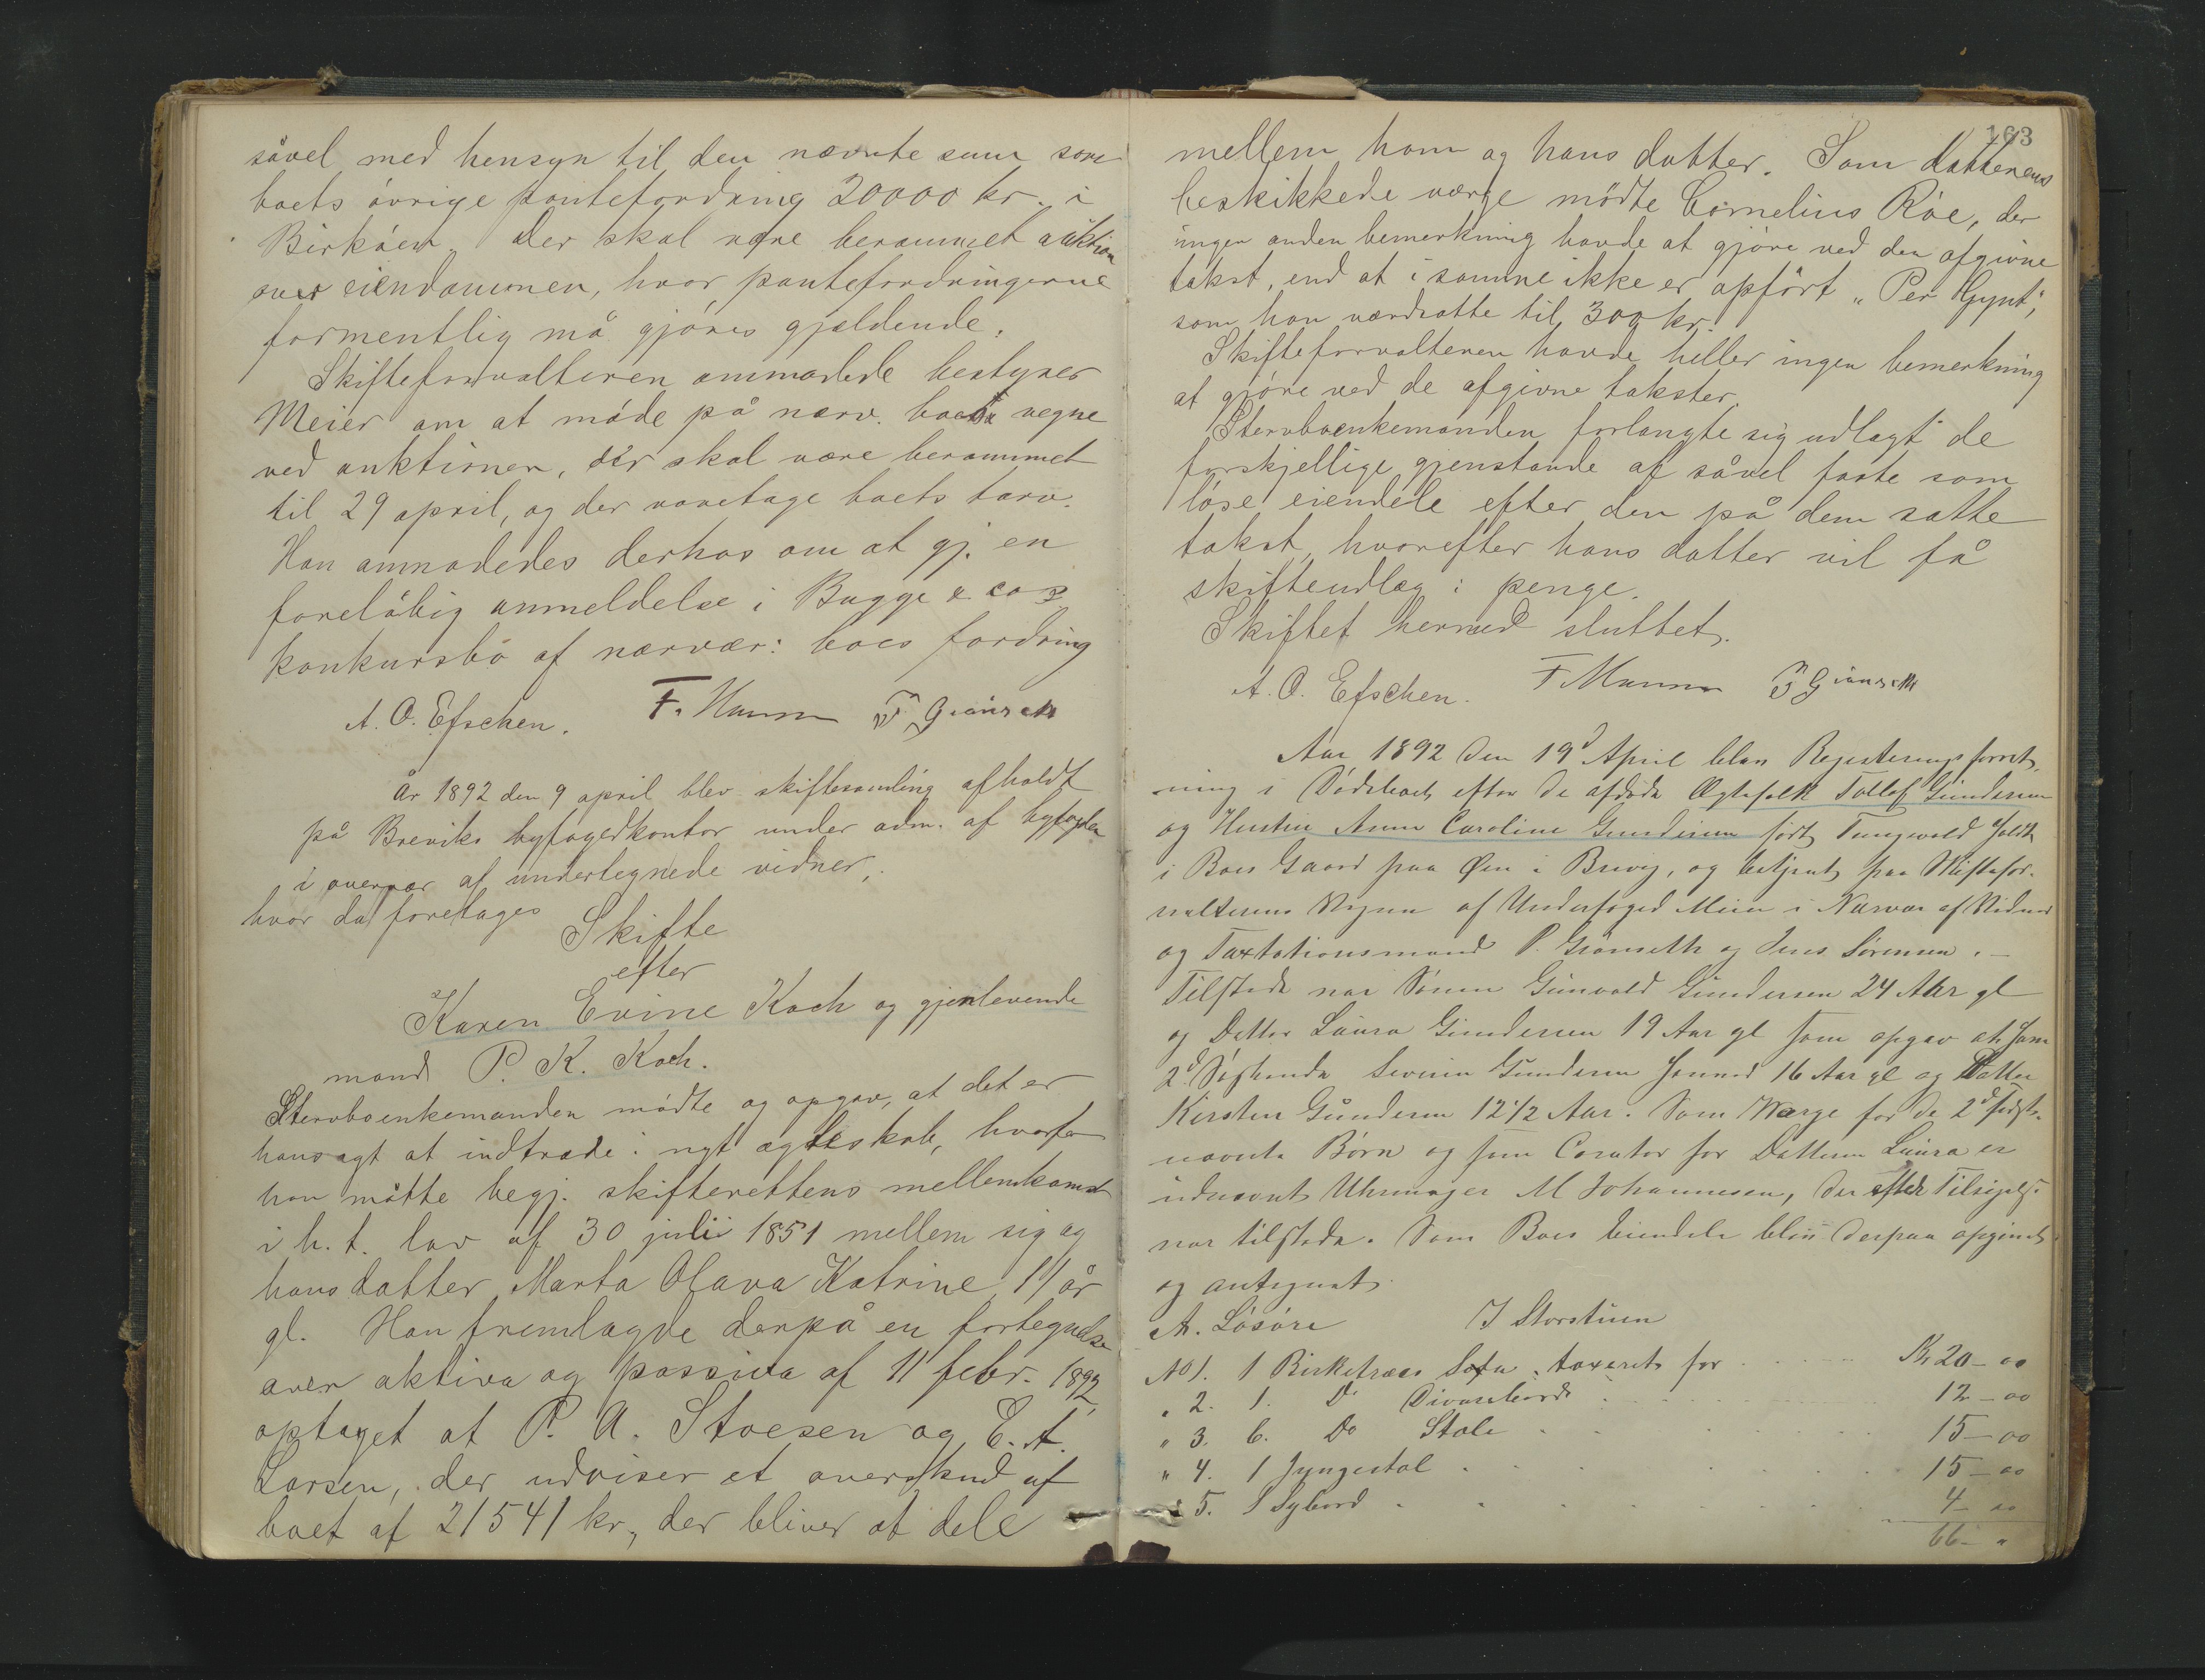 såvel med hensyn til den nævnte sum som
boets övrige pantefordring 20000 kr. i
Birköen. Der skal være berammet auktion
over eiendommen, hvor pantefordringerne
formentlig må gjöres gjældende.
Skifteforvalteren anmodede bestyrer
Meier om at möde på nærv. boets vegne
ved auktionen, der skal være berammet
til 29 april, og der varetage boets tarv.
Han anmodedes derhos om at gj. en
forelöbig anmeldelse i Bugge & co s
konkursbo af nærvær: boes fordring
A. O. Efschen. F. Hansen Grönseth
År 1892 den 9 april blev skiftesamling afholdt
på Breviks byfogedkontor under adm. af byfogden
i overvær af undertegnede vidner,
hvor da foretages
Skifte
efter
Karen Evine Koch og gjenlevende
mand P. K. Koch.
Stervboenkemanden mödte og opgav, at det er
hans agt at indtræde i nyt ægteskab, hvorfor
han måtte begj. skifterettens mellemkomst
i h. t. lov af 30 juli 1851 mellem sig og
hans datter Marta Olava Katrine 11 år
gl. Han fremlagde derpå en fortegnelse
over aktiva og passiva af 11 febr. 1892,
optaget af P. A. Stoesen og C. A.
Larsen, der udviser et overskud af
boet af 21541 kr., der bliver at dele
163
mellem ham og hans datter. Som datterens
beskikkede værge mödte Cornelius Röe, der
ingen anden bemerkning havde at gjöre ved den afgivne
takst, end at i samme ikke er opfört "Per Gynt",
som han værdsatte til 300 kr.
Skifteforvalteren havde heller ingen bemerkning
at gjöre ved de afgivne takster.
Stervboenkemanden forlangte sig udlagt de
forskjellige gjenstande af såvel faste som
löse eiendele efter den på dem satte
takst, hvorefter hans datter vil få
skifteudlæg i penge.
Skiftet hermed sluttet.
A. O. Efschen. F Hansen Grönseth
Aar 1892 den 19d April blev Registeringsforret-
ning i Dödsboet efter de afdöde Ægtefolk Tollef Gundersen
og Hustru Anne Caroline Gundersen födt Tungevold holdt
i Boes Gaard paa Øen i Brevig, og betjent paa Skiftefor-
valterens Vegne af Underfoged Meier i Nærvær af Vidner
og Taxtationsmænd P. Grönseth og Jens Sörensen. –
Tilstede var Sönnen Gunvald Gundersen 24 Aar gl
og Datter Laura Gundersen 19 Aar gl som opgav at have
2d Söskende Severin Gundersen 16 Aar gl og Datter
Kirsten Gundersen 12 1/2 Aar. Som Værge for de 2d sidst-
nævnte Børn og som Curator for Datteren Laura er
udnævnt Uhrmager M Johannesen, der efter Tilsigelse
var tilstede. Som Boes Eiendele blev derpaa opgivet
og antegnet.
A. Lösöre I Storstuen
No 1. 1 Birketræes Sofa, taxeret for Kr 20 – 00
" 2. 1. Do Divansbord 12 – 00
" 3. 6. Do Stole 15 – 00
" 4. 1 Gyngestol 15 – 00
" 5. 1 Sybord 4 – 00
66 – "